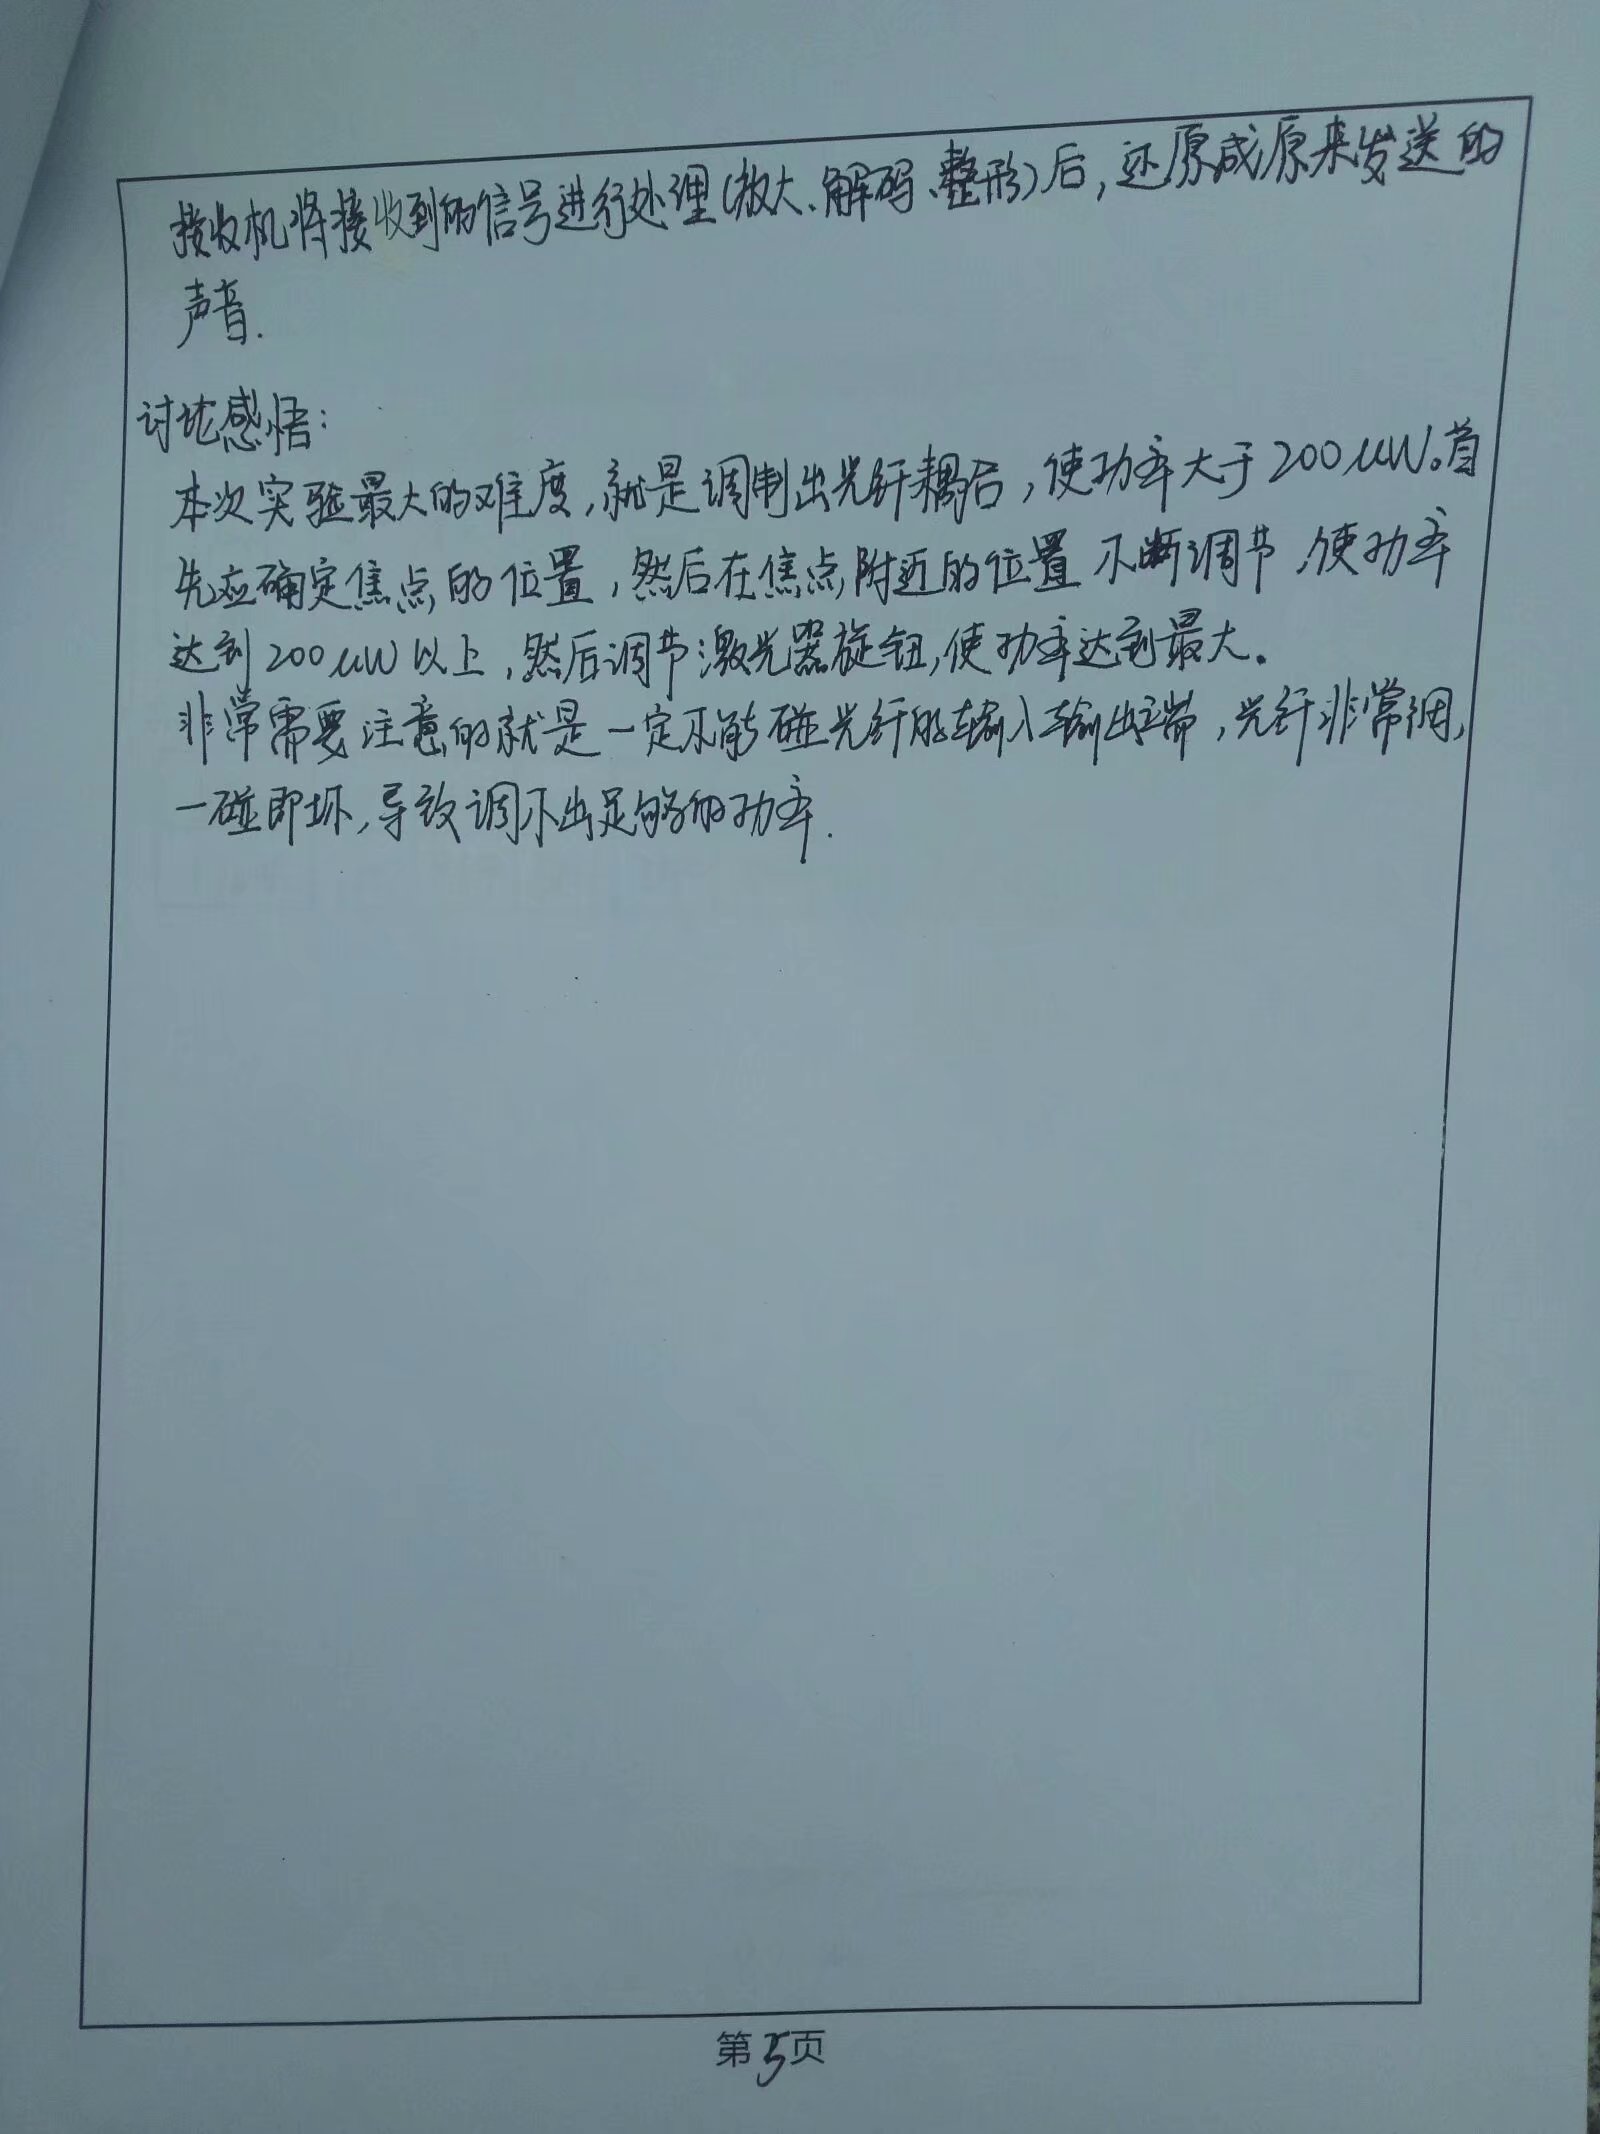 接收机将接收到的信号进行处理(放大、解码、整形)后,还原成原来发送的
声音.
讨论感悟:
本次实验最大的难度,就是调制出光纤耦合,使功率大于200μW。首
先应确定焦点的位置,然后在焦点附近的位置不断调节,使功率
达到200μW以上,然后调节激光器旋钮,使功率达到最大。
非常需要注意的就是一定不能碰光纤的输入输出端,光纤非常
一碰即坏,导致调不出足够的功率.
第5页